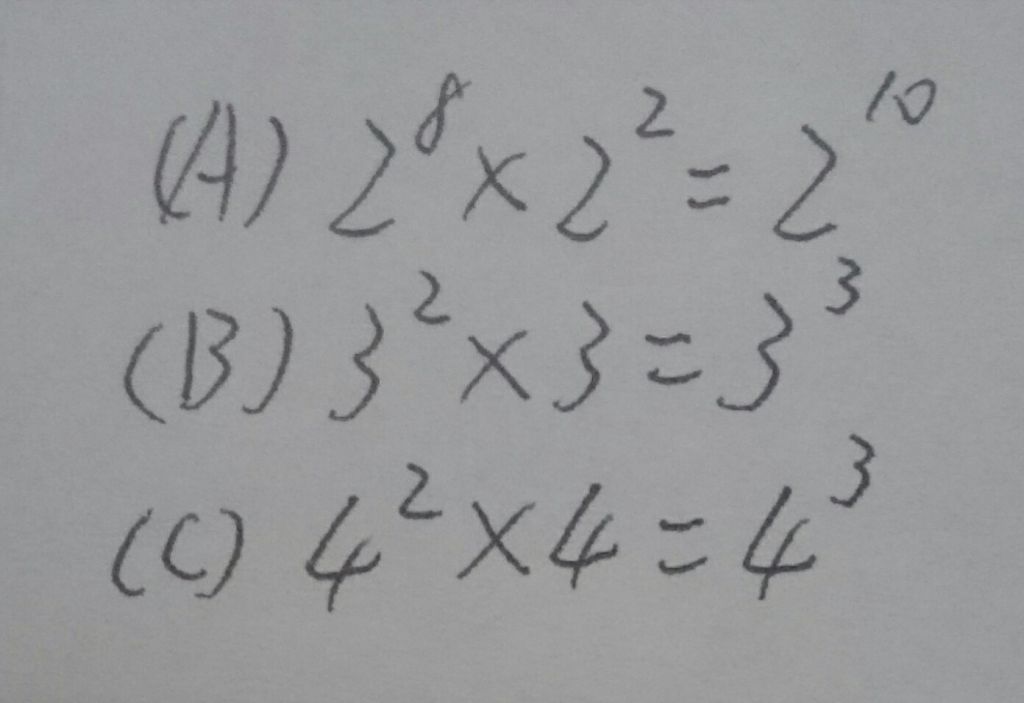 (A) 2⁸ × 2² = 2¹⁰
(B) 3² × 3 = 3³
(C) 4² × 4 = 4³